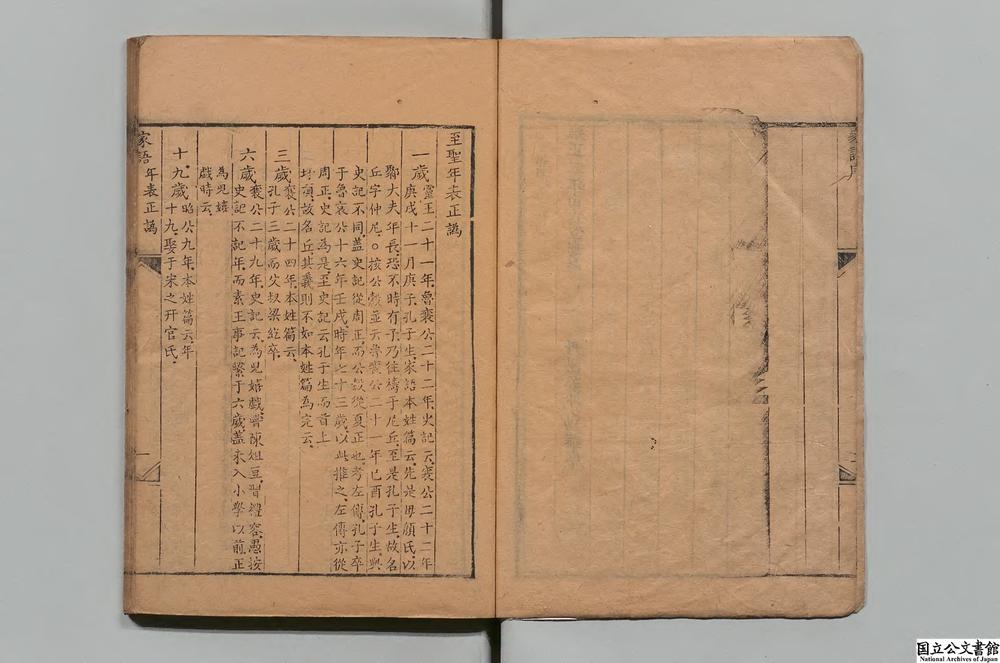 至聖年表正譌
一歲靈王二十一年魯襄公二十二年史記云襄公二十二年
庚戌十一月庚子孔子生家語本姓篇云先是毋顏氏以
鄹大夫年長恐不時有子乃往禱于尼丘至是孔子生故名
丘字仲尼○按公穀並云魯襄公二十一年己酉孔子生與
史記不同蓋史記從周正而公穀從夏正也考左傳孔子卒
于魯哀公十六年壬戌時年七十三歲以此推之左傳亦從
周正史記為是至史記云孔子生而首上
圩頂故名丘其義則不如本姓篇為完云
三歲襄公二十四年本姓篇云
孔子三歲而父叔梁紇卒
六歲襄公二十九年史記云為兒嬉戲嘗陳俎豆習禮容愚按
史記不記年而素王事記繫于六歲蓋未入小學以前正
為兒嬉
戲時云
十九歲昭公九年本姓篇云年
十九娶于宋之幵官氏
家語 年表正譌 一
国立公文書館
National Archives of Japan